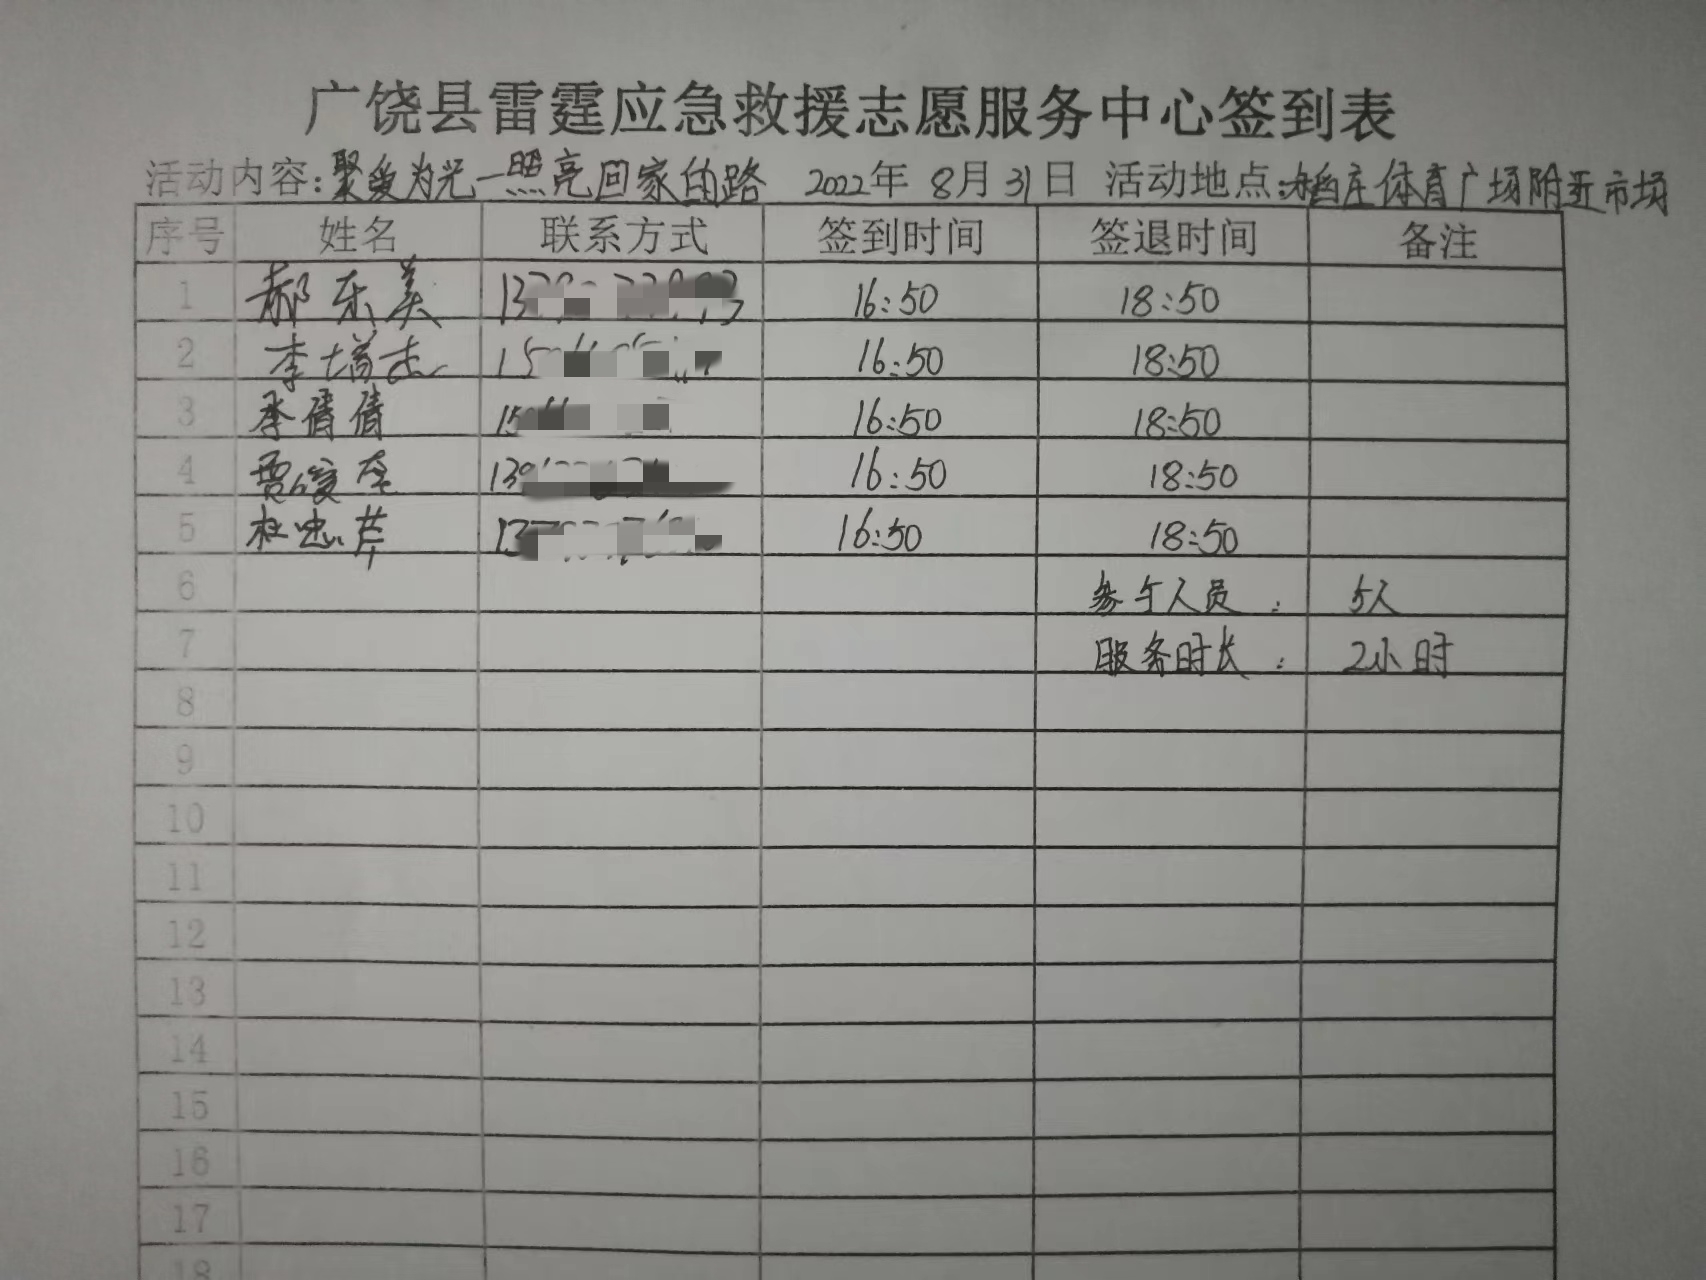 广饶县雷霆应急救援志愿服务中心签到表
活动内容:聚爱为光一照亮回家的路 2022年 8月31日 活动地点:稻庄体育广场附近市场
序号 姓名 联系方式 签到时间 签退时间 备注
1 郝东美 16:50 18:50
2 李培志 16:50 18:50
3 李倩倩 16:50 18:50
4 贾俊 16:50 18:50
5 杜忠芹 16:50 18:50
6 参与人员: 5人
7 服务时长: 2小时
8
9
10
11
12
13
14
15
16
17
18